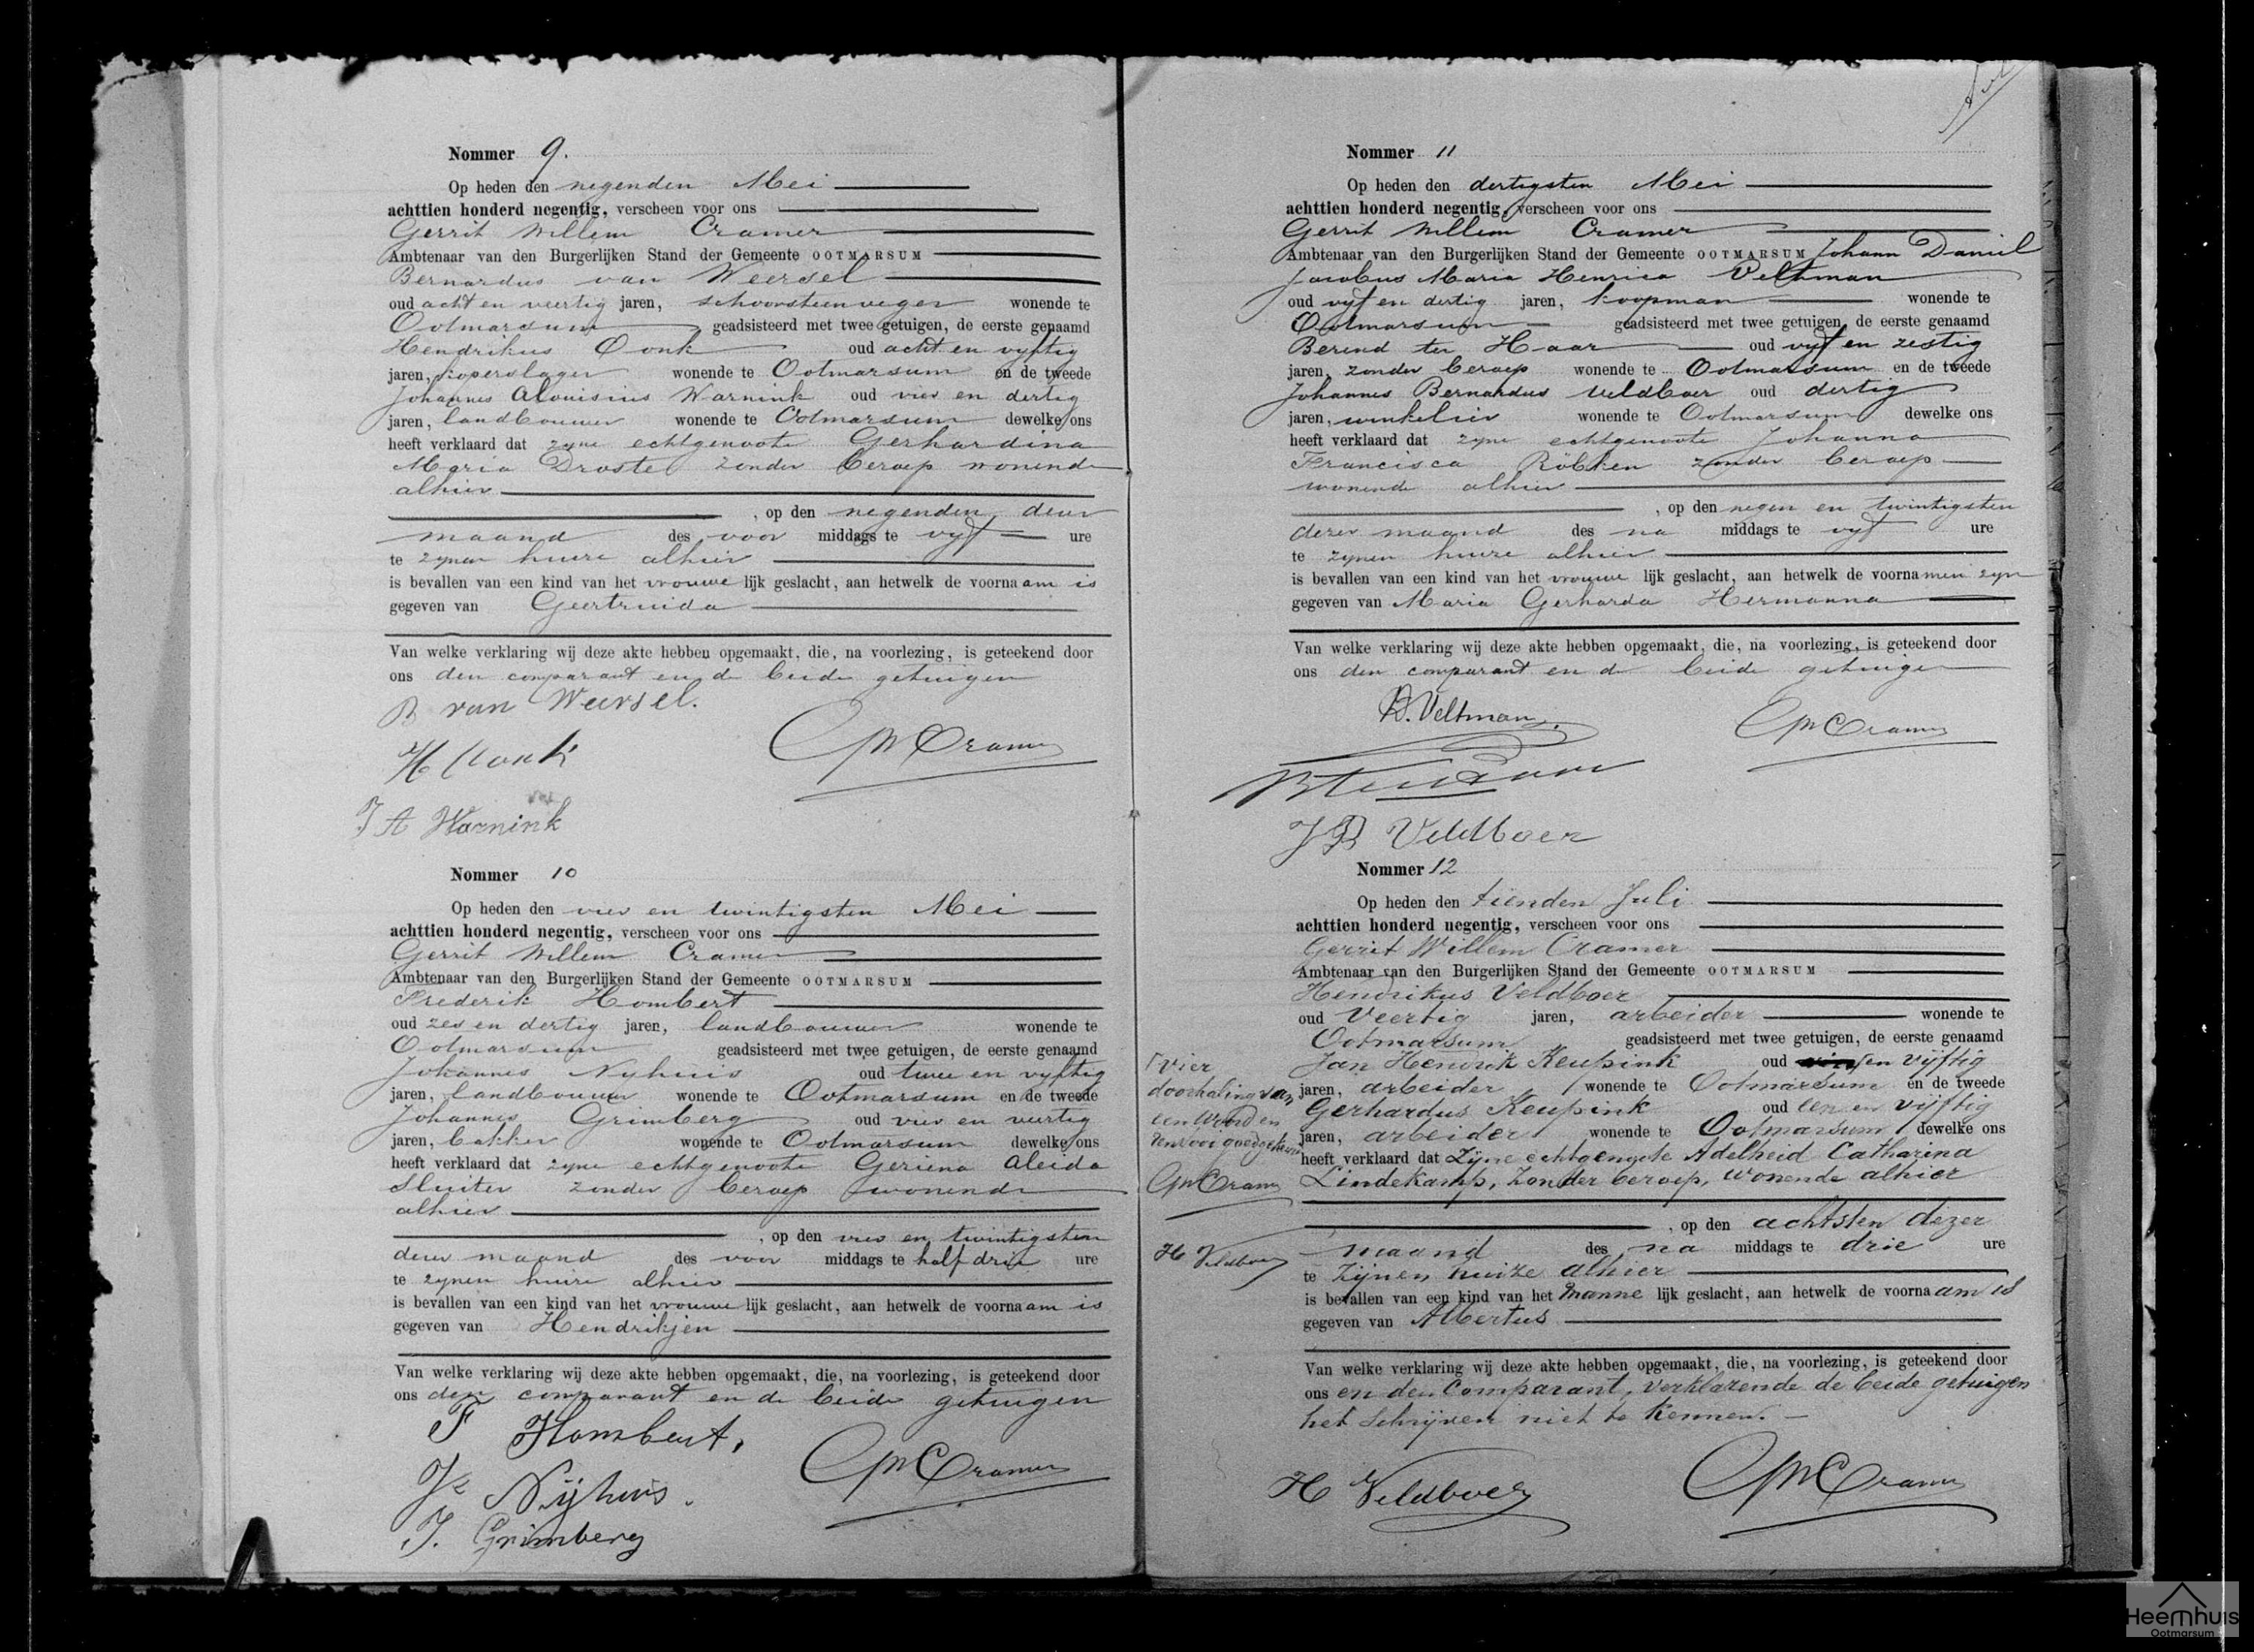 Nommer 9.
Op heden den negenden Mei
achttien honderd negentig, verscheen voor ons
Gerrit Willem Cramer
Ambtenaar van den Burgerlijken Stand der Gemeente OOTMARSUM
Bernardus van Weersel
oud acht en veertig jaren, schoorsteenveger wonende te
Ootmarsum geadsisteerd met twee getuigen, de eerste genaamd
Hendrikus Oonk oud acht en vyftig
jaren, koperslager wonende te Ootmarsum en de tweede
Johannes Alouisius Warnink oud vier en dertig
jaren, landbouwer wonende te Ootmarsum dewelke ons
heeft verklaard dat zyne echtgenoote Gerhardina
Maria Droste zonder beroep wonende
alhier
, op den negenden dezer
maand des voor middags te vyf ure
te zynen huize alhier
is bevallen van een kind van het vrouwe lijk geslacht, aan hetwelk de voornaam is
gegeven van Geertruida
Van welke verklaring wij deze akte hebben opgemaakt, die, na voorlezing, is geteekend door
ons den comparant en de beide getuigen
B van Weersel.
H Oonk
GWCramer
J A Warnink
Nommer 10
Op heden den vier en twintigsten Mei
achttien honderd negentig, verscheen voor ons
Gerrit Willem Cramer
Ambtenaar van den Burgerlijken Stand der Gemeente OOTMARSUM
Frederik Hombert
oud zes en dertig jaren, landbouwer wonende te
Ootmarsum geadsisteerd met twee getuigen, de eerste genaamd
Johannes Nyhuis oud twee en vyftig
jaren, landbouwer wonende te Ootmarsum en de tweede
Johannes Grimberg oud vier en veertig
jaren, bakker wonende te Ootmarsum dewelke ons
heeft verklaard dat zyne echtgenoote Geriena Aleida
Sluiter zonder beroep wonende
alhier
, op den vier en twintigsten
dezer maand des voor middags te half drie ure
te zynen huize alhier
is bevallen van een kind van het vrouwe lijk geslacht, aan hetwelk de voornaam is
gegeven van Hendrikjen
Van welke verklaring wij deze akte hebben opgemaakt, die, na voorlezing, is geteekend door
ons den comparant en de beide getuigen
F Hombert.
GWCramer
Nijhuis.
J. Grimberg
Nommer 11
Op heden den dertigsten Mei
achttien honderd negentig, verscheen voor ons
Gerrit Willem Cramer
Ambtenaar van den Burgerlijken Stand der Gemeente OOTMARSUM Johann Daniel
Jacobus Maria Henrica Veltman
oud vyf en dertig jaren, koopman wonende te
Ootmarsum geadsisteerd met twee getuigen, de eerste genaamd
Berend ter Haar oud vyf en zestig
jaren, zonder beroep wonende te Ootmarsum en de tweede
Johannes Bernardus Veldboer oud dertig
jaren, winkelier wonende te Ootmarsum dewelke ons
heeft verklaard dat zyne echtgenoote Johanna
Francisca Röbken zonder beroep
wonende alhier
, op den negen en twintigsten
dezer maand des na middags te vyf ure
te zynen huize alhier
is bevallen van een kind van het vrouwe lijk geslacht, aan hetwelk de voornamen zyn
gegeven van Maria Gerharda Hermanna
Van welke verklaring wij deze akte hebben opgemaakt, die, na voorlezing, is geteekend door
ons den comparant en de beide getuigen
D. Veltman
GWCramer
B ter Haar
J B Veldboer
Nommer 12
Op heden den tienden Juli
achttien honderd negentig, verscheen voor ons
Gerrit Willem Cramer
Ambtenaar van den Burgerlijken Stand der Gemeente OOTMARSUM
Hendrikus Veldboer
oud Veertig jaren, arbeider wonende te
Ootmarsum geadsisteerd met twee getuigen, de eerste genaamd
Jan Hendrik Keupink oud en vijftig
jaren, arbeider wonende te Ootmarsum en de tweede
Gerhardus Keupink oud een en vijftig
jaren, arbeider wonende te Ootmarsum dewelke ons
heeft verklaard dat Zijne echtgenoote Adelheid Catharina
Lindekamp, Zonder beroep, wonende alhier
, op den achtsten dezer
maand des na middags te drie ure
te Zijnen huize alhier
is bevallen van een kind van het Manne lijk geslacht, aan hetwelk de voornaam is
gegeven van Albertus
Van welke verklaring wij deze akte hebben opgemaakt, die, na voorlezing, is geteekend door
ons en den Comparant, verklarende de beide getuigen
het Schrijven niet te Kennen.
H Veldboer
GWCramer
vier
doorhaling van
een woord en
goedgekeurd
GWCramer
H Veldboer
Heemhuis
Ootmarsum